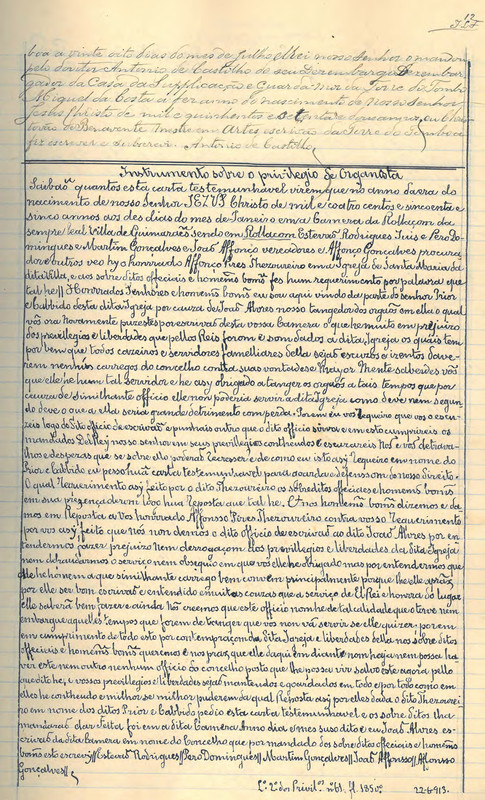 12
boa a vinte oito dias do mes de Julho elRei nosso Senhor o mandou
pelo doutor Antonio de Castilho do seu Desembargo Desembar
gador da Casa da Supplicação e Guarda Mór da Torre do Tombo
Miguel da Costa a fez anno do nascimento de Nosso Senhor
Jesus Christo de mil e quinhentos e setenta e annos, eu Chris
tovão de Benavente Mestre em Artes escrivão da Torre do Tombo a
fiz escrever e subscrevi. Antonio de Castilho
Instrumento sobre o privilegio de Organista
Saibaõ quantos esta carta testemunhavel virem que no anno da era do
nacimento de nosso Senhor JEZUS Christo de mil e coatro centos e sincoenta e
sinco annos aos des dias do mes de Janeiro em a Camera da Rollaçom da
sempre leal Villa de Guimarães sendo em Rollaçom Estevaõ Rodrigues Luis e Pero Do-
mingues e Martim Gonçalves e Joaõ Affonço vereadores e Affonço Gonçalves procura
dor e outros veo hy o honrado Affonço Pires Thezoureiro em a Igreja de Santa Maria da
dita Villa, e aos sobre ditos officiaes e homens bons fes hum requerimento por palavra que
tal he // Honrados Senhores e homens bons eu sou aqui vindo da parte do senhor Prior
e Cabbido desta dita Igreja por cauza de Joaõ Alvres nosso tangedor dos orgaõs em ella o qual
vós ora novamente puzestes por escrivaõ desta vossa Camera o que he muito em prejuizo
dos previllegios e liberdades que pellos Reis forom e som dados á dita Igreja os quais tem
por bem que todos cazeiros e servidores familliares della sejaõ escuzos e izentos dave-
rem nenhuns carregos do concelho contra suas vontades
que elle he hum tal servidor e he asy obrigado a tanger os orgaõs a tais tempos que por
cauza de similhante officio elle non poderia servir a dita Igreja como deve nem segun
do deve o que a ella seria grande detrimento com perda. Porem eu vos requeiro que vos o escu-
zeis logo do dito officio de escrivaõ e punhais outro que o dito officio sirva e em esto cumprireis os
mandados DelRey nosso senhor em seus previllegios contheudos e escuzareis nos e vós de traba-
lhos e despezas que se sobre ello poderaõ recrescer e de como eu isto asy requeiro em nome do
Prior e Cabbido eu pesso huã carta testemunhavel para goarda e defensom do nosso Direito.
O qual requerimento asy feito por o dito Thezoureiro os sobreditos officiaes e homens bons
em sua prezença derom logo hua reposta que tal he. E nos homens bons dizemos e da-
mos em reposta a vos honrado Affonsso Pires Thezoureiro contra vosso requerimento
por vos asy feito que nós non demos o dito officio de escrivaõ ao dito Joaõ Alvres por en-
tendermos fazer prejuizo nem derrogaçom dos previllegios e liberdades da dita Igreja
nem defraudarmos o serviço nem obsequio em que vos elle he obrigado mas por entendermos que
elle he homem a que similhante carrego bem convem principalmente porque lhe elle apraz
por elle ser bom escrivaõ e entendido em outras couzas que a serviço de ElRei e honra do lugar
elle saberá bem fazer e ainda nós creemos que este officio nom he de tal calidade que o torve nem
embargue aquelles tempos que forem de tanger que vos non vá servir se elle quizer, porem
em cumprimento de todo esto por contemplaçom da dita Igreja e liberdades della nos sobre ditos
officiaes e homens bons queremos e nos praz, que elle daqui em diante nom haja nem possa ha
ver este nem outro nenhum officio do concelho posto que lhe possa vir salvo este agora pello
que dito he, e vossos previllegios e liberdades sejaõ mantendos e goardados em todo e por todo como em
elles he contheudo e milhor se milhor puderem da qual reposta asy por elles dada o dito Thezourei
ro em nome dos ditos Prior e Cabbido pedio esta carta testemunhavel e os sobre ditos lha
mandaraõ dar feita foi em a dita Camera Anno dia e mes suso dito e eu Joaõ Alvres es-
crivaõ da dita Camera em nome do Concelho que por mandado dos sobre ditos officiaes e homens
bons esto escrevi // Estevaõ Rodrigues // Pero Domingues // Martim Gonçalves // Joaõ Affonsso // Affonso
Gonçalves //
Lº 2º dos Privilos. fl. 135vº 22-6-913.